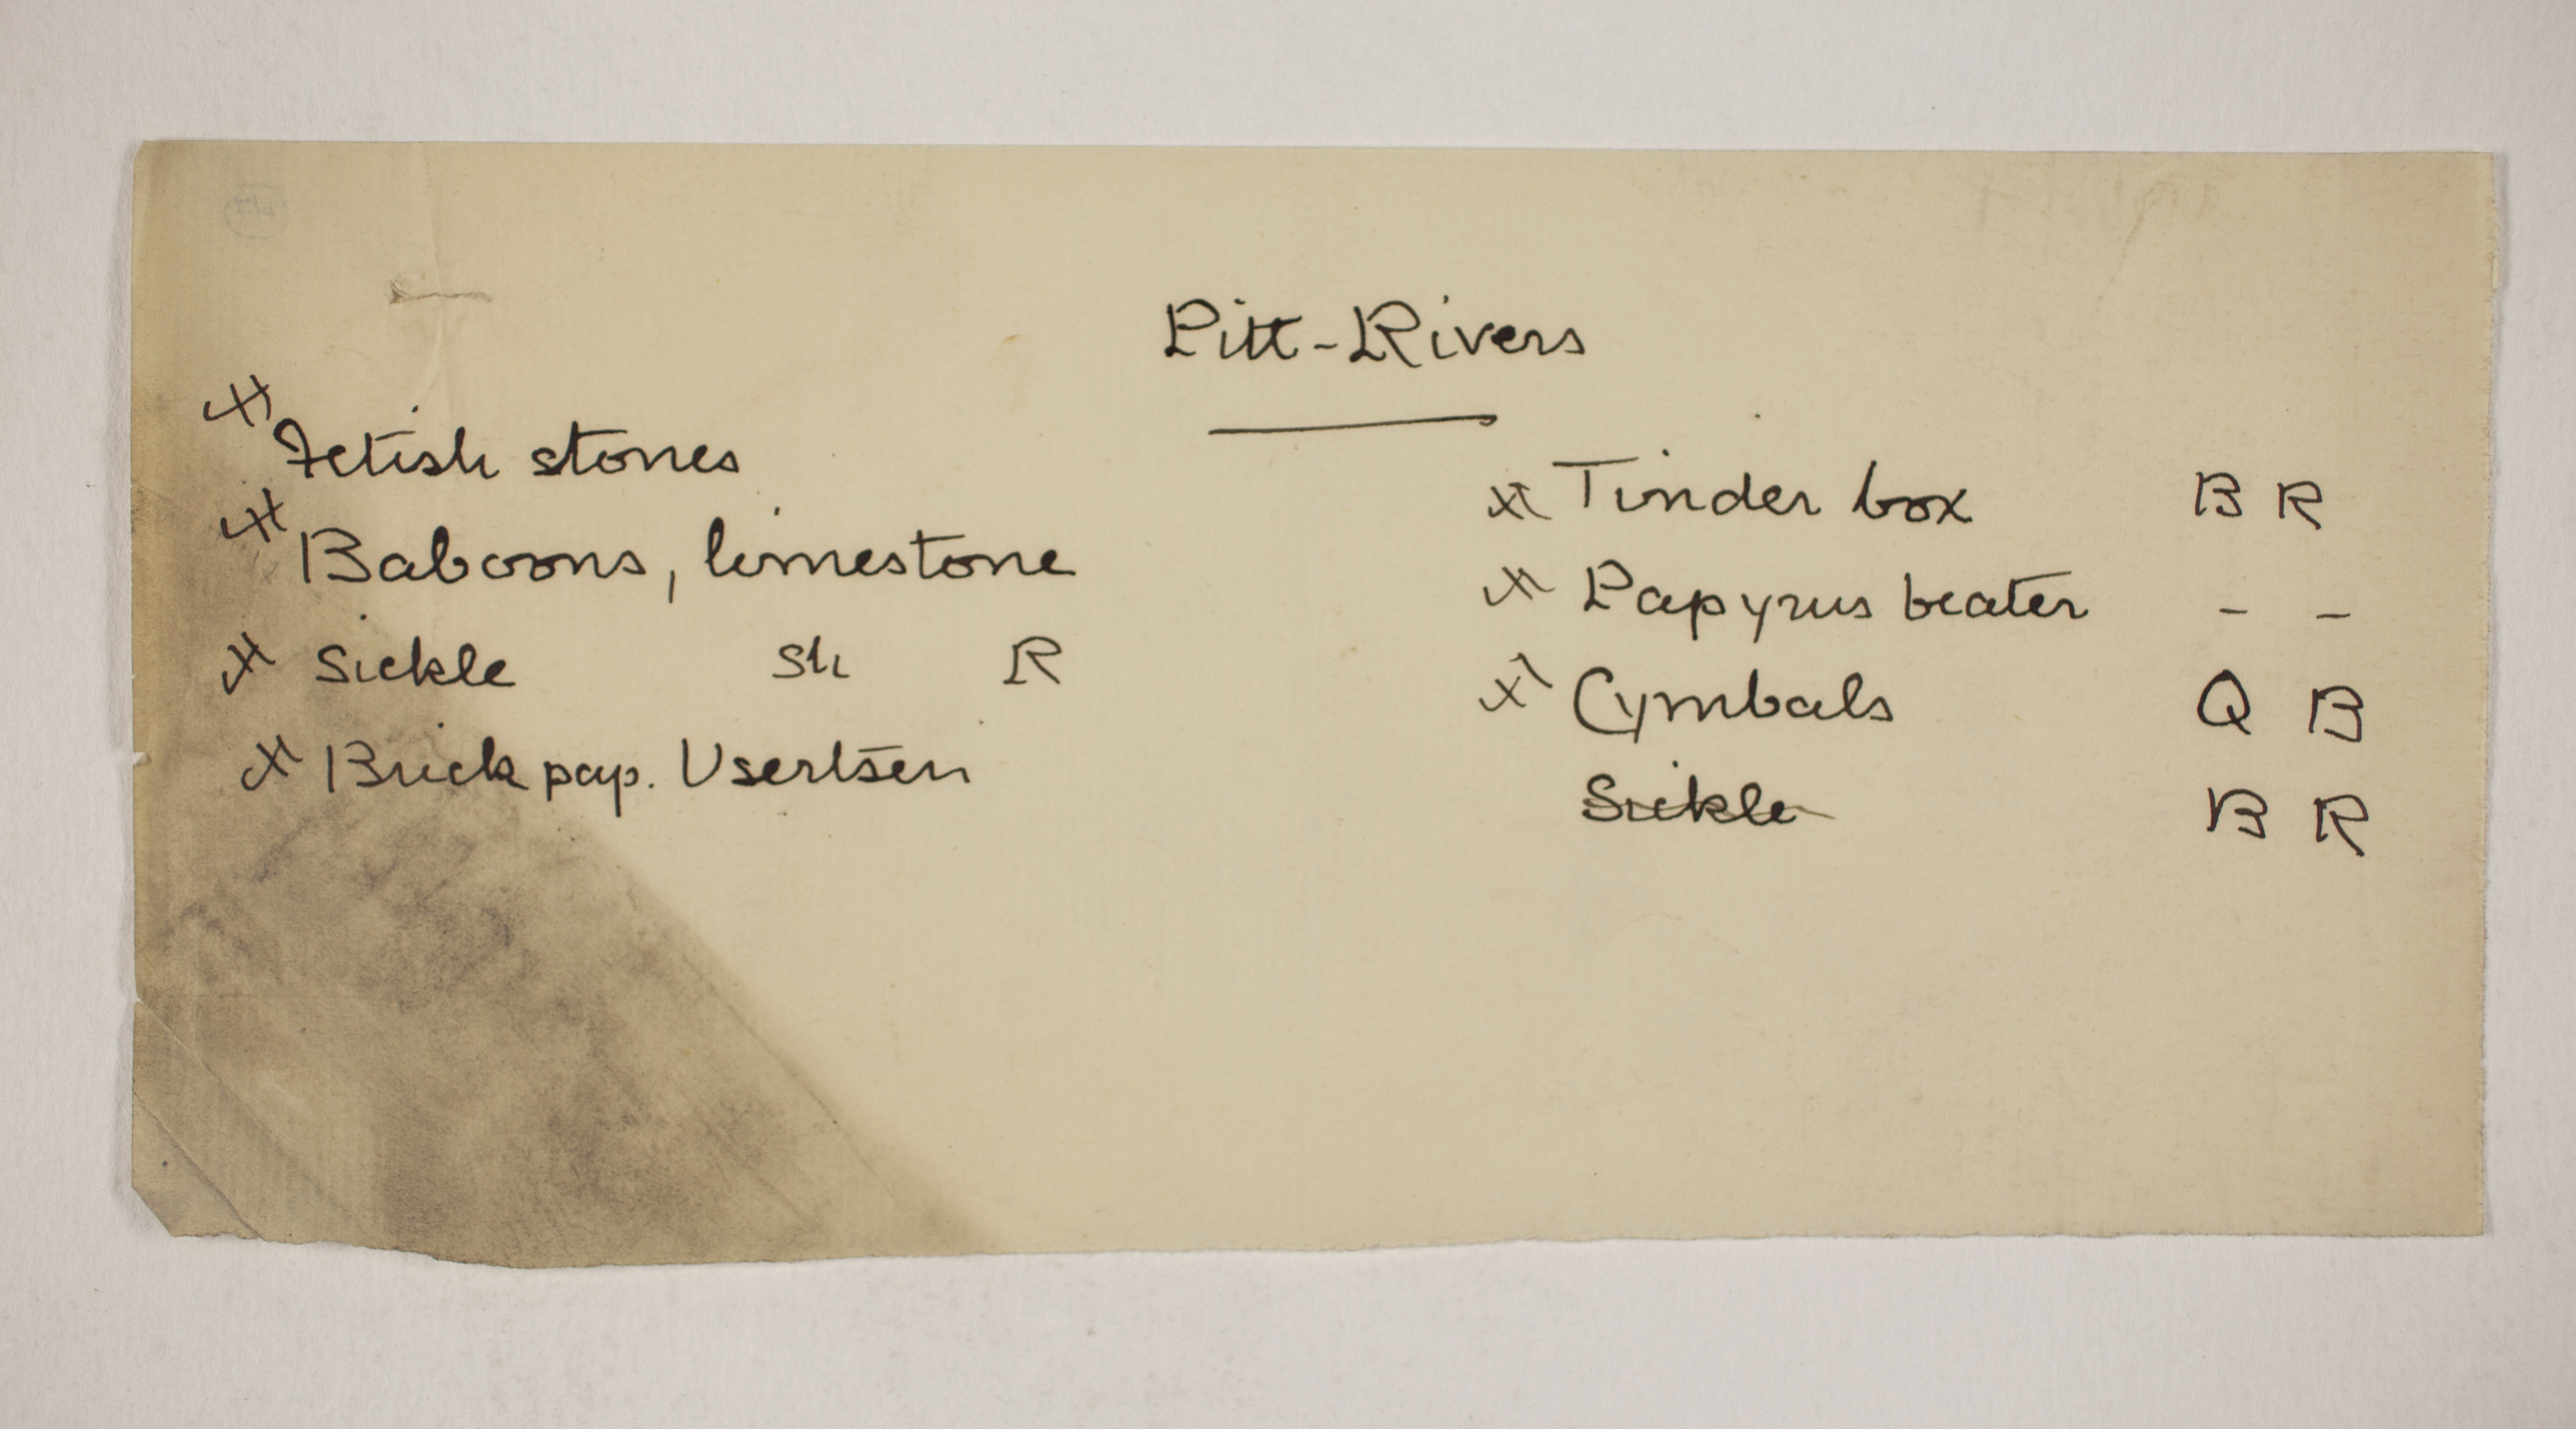 Pitt-Rivers
Fetish stones
Baboons, limestone
Sickle Sh R
Brick pap. Usertsen
Tinder box B R
Papyrus beater - -
Cymbals Q B
Sickle B R